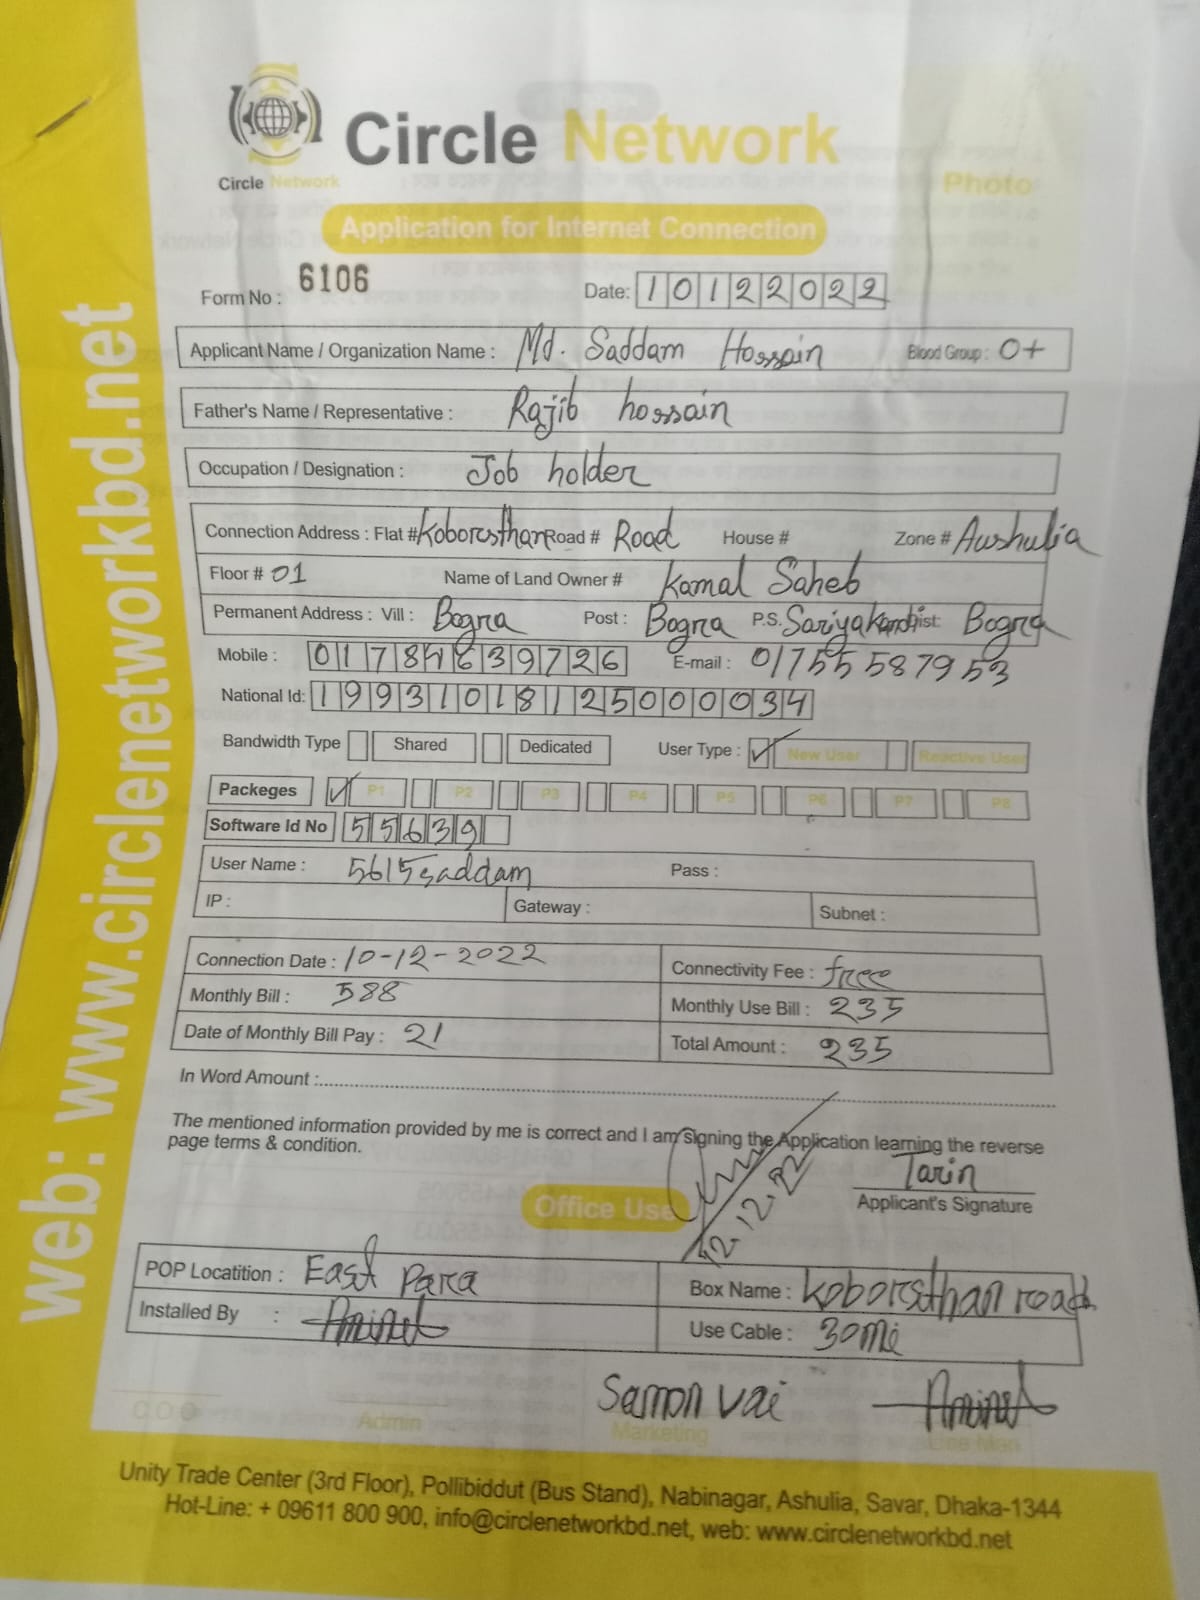 Circle Network
Circle Network
Photo
Application for Internet Connection
Form No : 6106
Date: 10122022
Applicant Name / Organization Name : Md. Saddam Hossain Blood Group : O+
Father's Name / Representative : Rajib hossain
Occupation / Designation : Job holder
Connection Address : Flat # Koborsthan Road # Road House # Zone # Aushulia
Floor # 01 Name of Land Owner # Kamal Saheb
Permanent Address : Vill : Bogra Post : Bogra P.S. Sariyakandi Dist: Bogra
Mobile : E-mail : 01755587953
National Id: 19931018125000034
Bandwidth Type Shared Dedicated User Type : ✓ New User Reactive User
Packeges ✓ P1 P2 P3 P4 P5 P6 P7 P8
Software Id No 55639
User Name : 5615saddam Pass :
IP : Gateway : Subnet :
Connection Date : 10-12-2022 Connectivity Fee : free
Monthly Bill : 588 Monthly Use Bill : 235
Date of Monthly Bill Pay : 21 Total Amount : 235
In Word Amount :
The mentioned information provided by me is correct and I am signing the Application learning the reverse
page terms & condition.
Tarin
Applicant's Signature
12.12.22
Office Use
POP Locatition : East Para Box Name : Koborsthan road
Installed By : Use Cable : 30Mi
Samon vai
C.O.O Admin Marketing Line Man
Unity Trade Center (3rd Floor), Pollibiddut (Bus Stand), Nabinagar, Ashulia, Savar, Dhaka-1344
Hot-Line: + 09611 800 900, info@circlenetworkbd.net, web: www.circlenetworkbd.net
web: www.circlenetworkbd.net